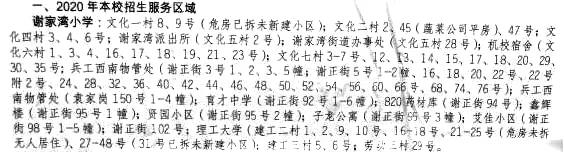 一、2020年本校招生服务区域
谢家湾小学：文化一村8、9号（危房已拆未新建小区）；文化二村2、45（蔬菜公司平房）、47号；文
化四村3、4、6号；谢家湾派出所（文化五村2号）；谢家湾街道办事处（文化五村28号）；机校宿舍（文
化六村1、3、4、16、17、18、19、21、23号）；文化七村3-7号、12、13、14、15、17、18、20、29、
30、35号；兵工西南物管处（谢正街3号1、2、3、5幢；谢正街5号1-2幢、16、18、20、22号、22号
附2号、24、28、32、36、40、42、44、46、48、50、52、54、56、60、66号、68、74、76号）；兵工西
南物管处（袁家岗150号1-4幢）；育才中学（谢正街92号1-6幢）；820药材库（谢正街94号）；鑫辉
楼（谢正街95号1幢）；贤园小区（谢正街95号2幢）；子龙公寓（谢正街99号3幢）；戈佳小区（谢正
街98号1-5幢）；谢正街102号；理工大学（建工二村1、2、9、10号、16-18号、21-25号（危房未拆
无人居住）、27-48号（31号已拆未新建小区）；建工三村5、6号；劳动三村29号。